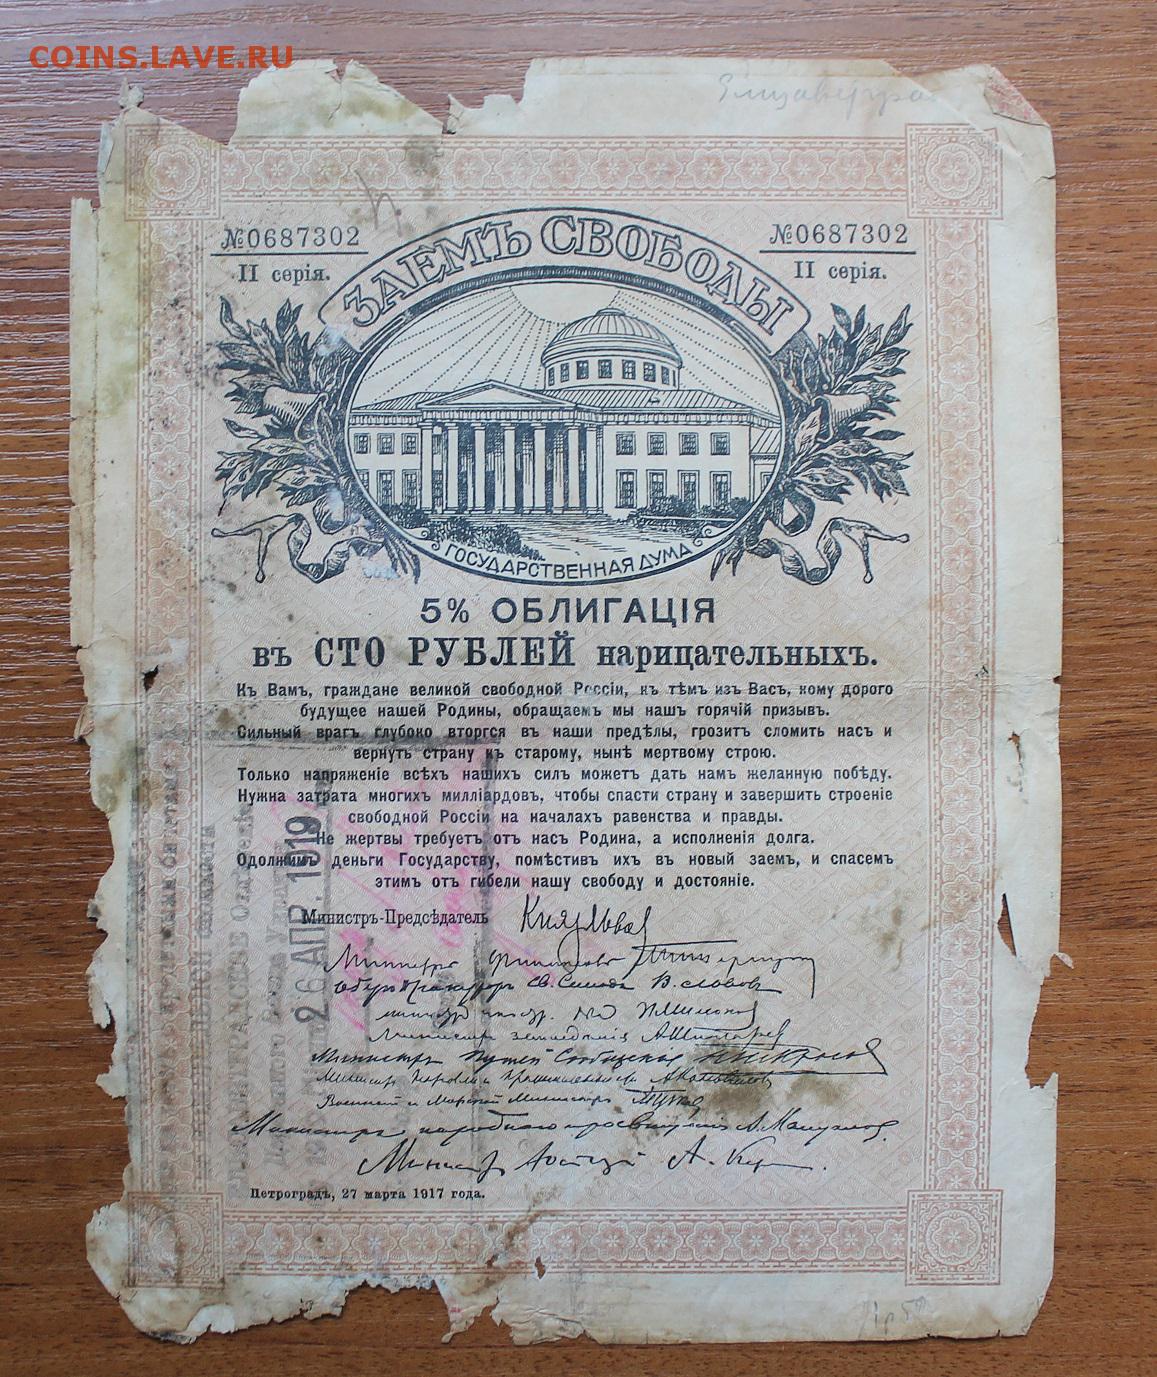 COINS.LAVE.RU
Елисаветград
№0687302 ЗАЕМЪ СВОБОДЫ №0687302
II серія. II серія.
ГОСУДАРСТВЕННАЯ ДУМА
5% ОБЛИГАЦІЯ
въ СТО РУБЛЕЙ нарицательныхъ.
Къ Вамъ, граждане великой свободной Россіи, къ тѣмъ изъ Васъ, кому дорого
будущее нашей Родины, обращаемъ мы нашъ горячій призывъ.
Сильный врагъ глубоко вторгся въ наши предѣлы, грозитъ сломить насъ и
вернуть страну къ старому, нынѣ мертвому строю.
Только напряженіе всѣхъ нашихъ силъ можетъ дать намъ желанную побѣду.
Нужна затрата многихъ милліардовъ, чтобы спасти страну и завершить строеніе
свободной Россіи на началахъ равенства и правды.
Не жертвы требуетъ отъ насъ Родина, а исполненія долга.
Одолжимъ деньги Государству, помѣстивъ ихъ въ новый заемъ, и спасемъ
этимъ отъ гибели нашу свободу и достояніе.
26 АПР. 1919
Министръ-Предсѣдатель Князь Львов
Министръ финансовъ М Терещенко
Оберъ Прокуроръ Св. Синода В. Львовъ
П Милюков
Министр земледѣлія А Шингарев
Министръ Путей Сообщенія Н Некрасов
Министр Торговли и Промышленности А Коновалов
Военный и Морской Министръ А Гучков
Министръ народного просвѣщенія А. Мануилов.
Министр Юстиціи А. Кер
Петроградъ, 27 марта 1917 года.